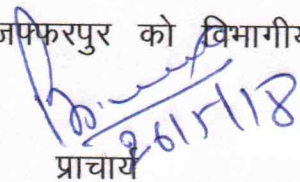 जफ्फरपुर को विभागीय
26/5/18
प्राचार्य